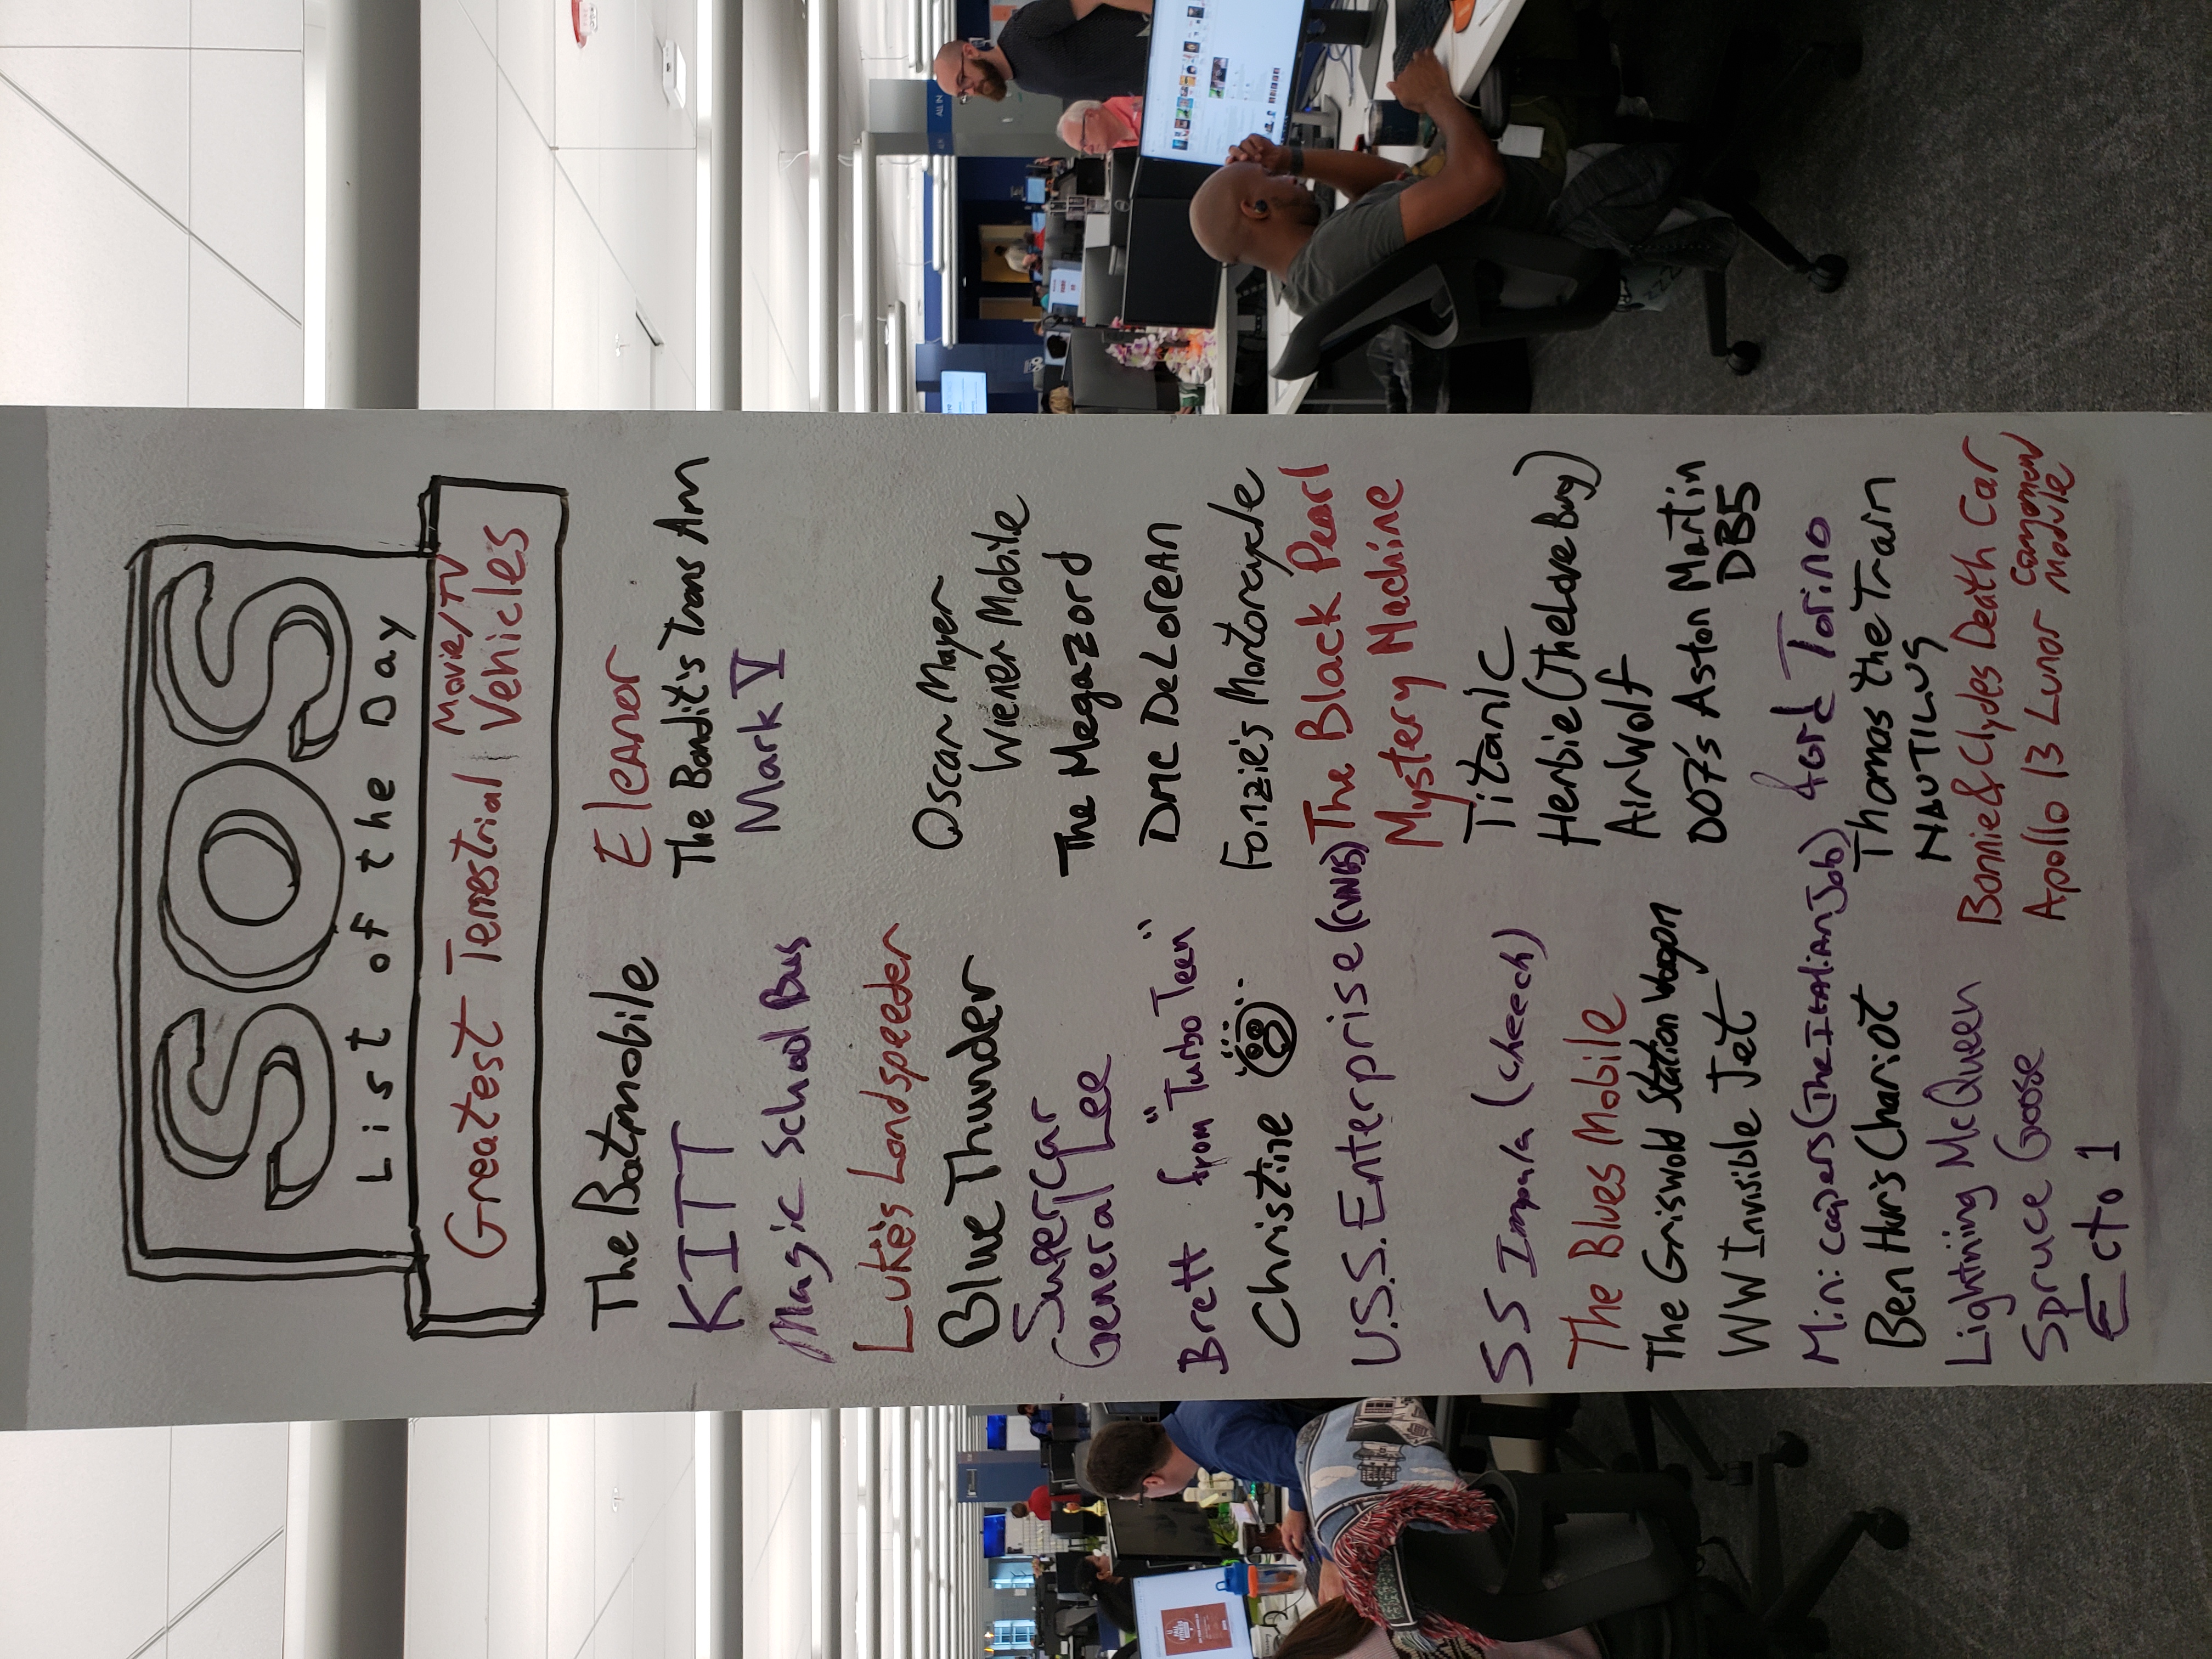 SOS
List of the Day
Greatest Terrestrial Movie/TV Vehicles
The Batmobile
KITT
Magic School Bus
Luke's Landspeeder
Blue Thunder
Supercar
General Lee
Brett from "Turbo Teen"
Christine
U.S.S. Enterprise (CVN65)
SS Impala (Cheech)
The Blues Mobile
The Griswold Station Wagon
WW Invisible Jet
Mini coopers (The Italian Job)
Ben Hur's Chariot
Lightning McQueen
Spruce Goose
Ecto 1
Eleanor
The Bandit's Trans Am
Mark V
Oscar Mayer
Wiener Mobile
The Megazord
DMC DeLorean
Fonzie's Mortorcycle
The Black Pearl
Mystery Machine
Titanic
Herbie (The Love Bug)
AirWolf
007's Aston Martin
DB5
ford Torino
Thomas the Train
NAUTILUS
Bonnie & Clydes Death Car
Apollo 13 Lunar Command
Module
ALL IN
FALL
FITNESS